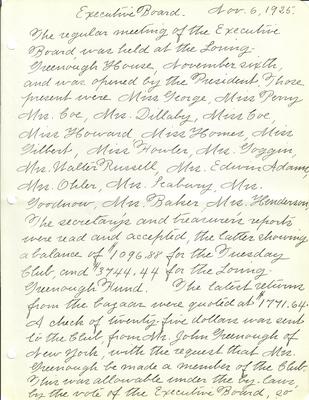 Executive Board. Nov. 6, 1925.
The regular meeting of the Executive
Board was held at the Loring-
Greenough House, November sixth,
and was opened by the President. Those
present were Miss George, Miss Perry
Mrs. Coe, Mrs. Dillaby, Miss Coe,
Miss Howard, Miss Homer, Miss
Gilbert, Miss Fowler, Mrs. Goggin,
Mrs. Walter Russell, Mrs. Edwin Adams,
Mrs. Ohler, Mrs. Seabury, Mrs.
Goodnow, Mrs. Baker Mrs. Henderson.
The secretary's and treasurer's reports
were read and accepted, the latter showing
a balance of $1096.88 for the Tuesday
Club, and $3744.44 for the Loring-
Greenough Fund. The latest returns
from the bazaar were quoted at $1771.64.
A check of twenty-five dollars was sent
to the Club from Mr. John Greenough of
New York, with the request that Mrs.
Greenough be made a member of the Club.
This was allowable under the by-laws,
by the vote of the Executive Board, so